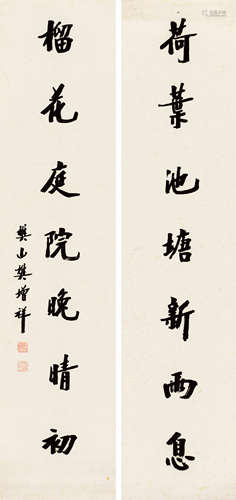 荷葉池塘新雨息
榴花庭院晚晴初
樊山樊增祥